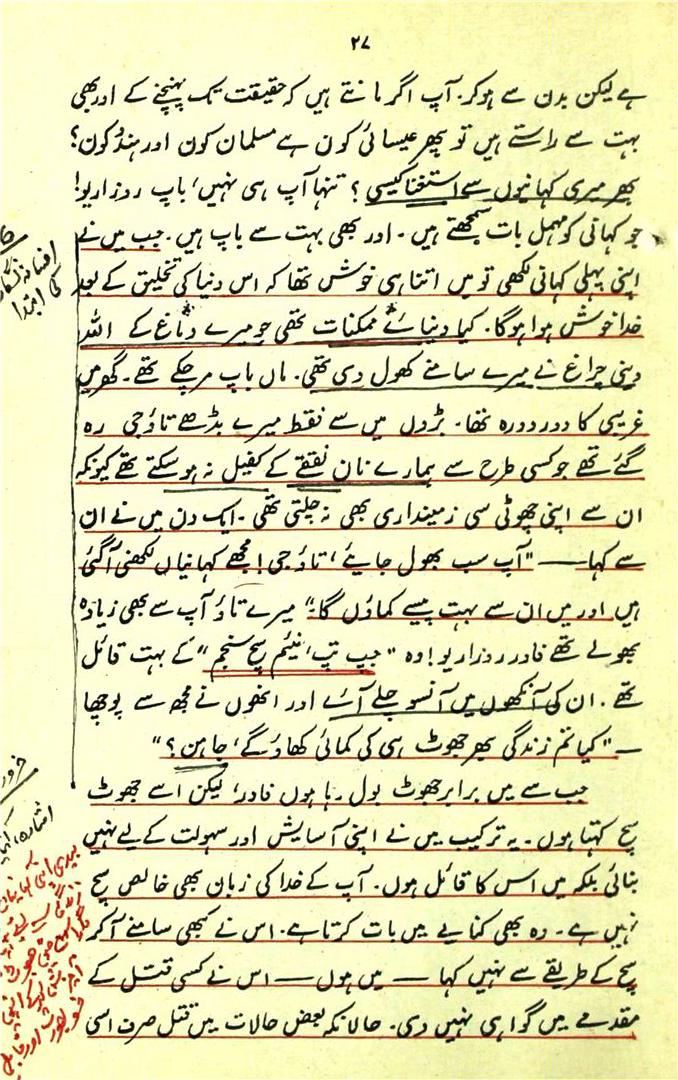 ۲۷
ہے لیکن بدن سے ہوکر. آپ اگر مانتے ہیں کہ حقیقت تک پہنچنے کے اور بھی
بہت سے راستے ہیں تو پھر عیسائی کون ہے مسلمان کون اور ہندو کون؟
پھر میری کہانیوں سے استغنا کیسی؟ تنہا آپ ہی نہیں، باپ روزاریو!
جو کہانی کو مہمل بات سمجھتے ہیں۔ اور بھی بہت سے باپ ہیں۔ جب میں نے
اپنی پہلی کہانی لکھی تو میں اتنا ہی خوش تھا کہ اس دنیا کی تخلیق کے بعد
خدا خوش ہوا ہوگا. کیا دنیائے ممکنات تھی جو میرے دماغ کے اللہ
دینی چراغ نے میرے سامنے کھول دی تھی. ماں باپ مر چکے تھے۔ گھر میں
غریبی کا دور دورہ تھا۔ بڑوں میں سے فقط میرے بڈھے تاؤجی رہ
گئے تھے جو کسی طرح سے ہمارے نان نفقے کے کفیل نہ ہوسکتے تھے کیونکہ
ان سے اپنی چھوٹی سی زمینداری بھی نہ چلتی تھی۔ ایک دن میں نے ان
سے کہا — "آپ سب بھول جایئے، تاؤجی! مجھے کہانیاں لکھنی آگئی
ہیں اور میں ان سے بہت پیسے کماؤں گا۔" میرے تاؤ آپ سے بھی زیادہ
بھولے تھے فادر روزاریو! وہ "جپ تپ، نیئم سچ سنجم" کے بہت قائل
تھے. ان کی آنکھوں میں آنسو چلے آئے اور انھوں نے مجھ سے پوچھا
— "کیا تم زندگی بھر جھوٹ ہی کی کمائی کھاؤ گے، جاہن؟"
جب سے میں برابر جھوٹ بول رہا ہوں فادر، لیکن اسے جھوٹ
سچ کہتا ہوں۔ یہ ترکیب میں نے اپنی آسایش اور سہولت کے لیے نہیں
بنائی بلکہ میں اس کا قائل ہوں. آپ کے خدا کی زبان بھی خالص سچ
نہیں ہے۔ وہ بھی کنایے میں بات کرتا ہے. اس نے کبھی سامنے آکر
سچ کے طریقے سے نہیں کہا — میں ہوں — اس نے کسی قتل کے
مقدمے میں گواہی نہیں دی. حالانکہ بعض حالات میں قتل صرف اسی
افسانہ
کی ابتدا